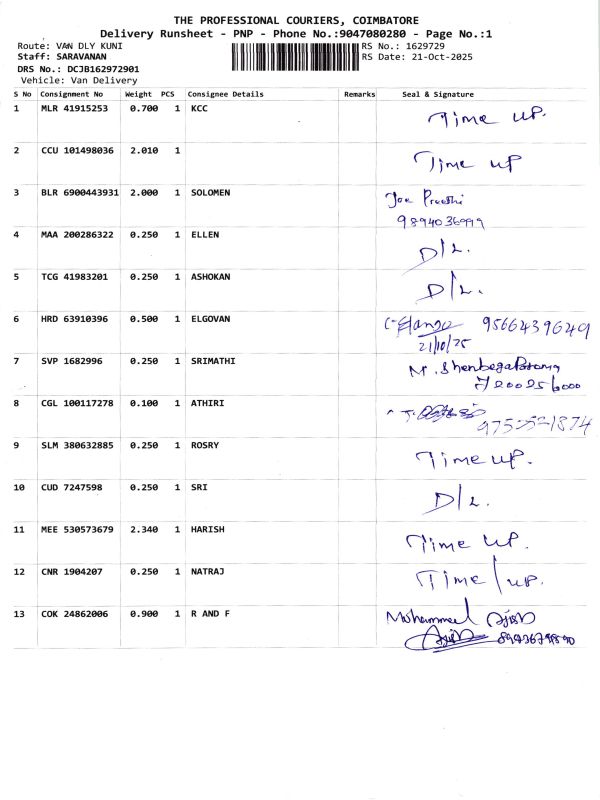 THE PROFESSIONAL COURIERS, COIMBATORE
Delivery Runsheet - PNP - Phone No.:9047080280 - Page No.:1
Route: VAN DLY KUNI
RS No.: 1629729
Staff: SARAVANAN
RS Date: 21-Oct-2025
DRS No.: DCJB162972901
Vehicle: Van Delivery
S No Consignment No Weight PCS Consignee Details Remarks Seal & Signature
1 MLR 41915253 0.700 1 KCC Time up.
2 CCU 101498036 2.010 1 Time up
3 BLR 6900443931 2.000 1 SOLOMEN Joe Preethi
9894036999
4 MAA 200286322 0.250 1 ELLEN D/L.
5 TCG 41983201 0.250 1 ASHOKAN D/L.
6 HRD 63910396 0.500 1 ELGOVAN 9566439649
21/10/25
7 SVP 1682996 0.250 1 SRIMATHI
8 CGL 100117278 0.100 1 ATHIRI
9 SLM 380632885 0.250 1 ROSRY Time up.
10 CUD 7247598 0.250 1 SRI D/L.
11 MEE 530573679 2.340 1 HARISH Time up.
12 CNR 1904207 0.250 1 NATRAJ Time/up.
13 COK 24862006 0.900 1 R AND F Mohammed